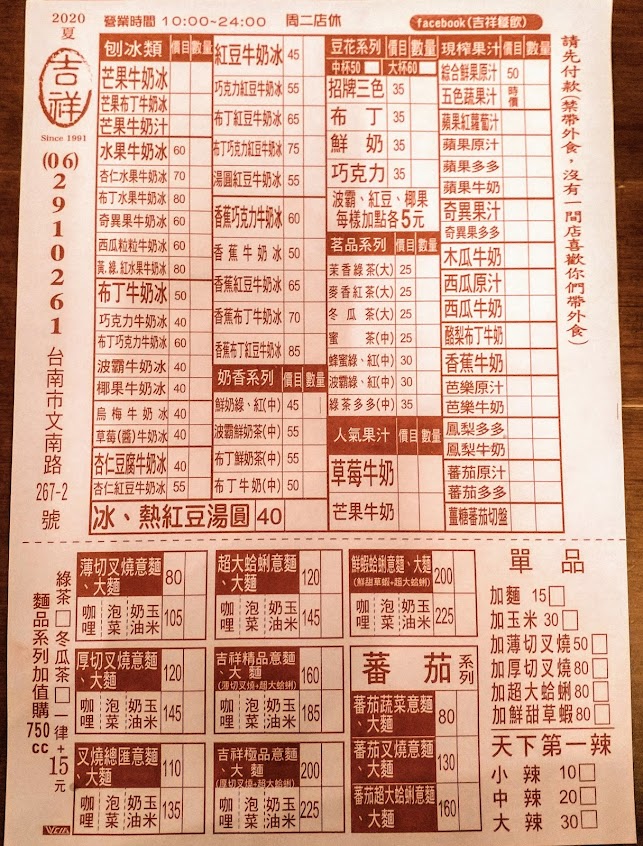 2020
夏
吉祥
Since 1991
(06)
2910261
台南市文南路
267-2
號
營業時間 10:00~24:00 周二店休
facebook(吉祥餐飲)
請先付款(禁帶外食,沒有一間店喜歡你們帶外食)
刨冰類 價目 數量
芒果牛奶冰
芒果布丁牛奶冰
芒果牛奶汁
水果牛奶冰 60
杏仁水果牛奶冰 70
布丁水果牛奶冰 80
奇異果牛奶冰 60
西瓜粒粒牛奶冰 60
黃.綠.紅水果牛奶冰 80
布丁牛奶冰 50
巧克力牛奶冰 40
布丁巧克力牛奶冰 60
波霸牛奶冰 40
椰果牛奶冰 40
烏梅牛奶冰 40
草莓(醬)牛奶冰 40
杏仁豆腐牛奶冰 40
杏仁紅豆牛奶冰 55
冰、熱紅豆湯圓 40
紅豆牛奶冰 45
巧克力紅豆牛奶冰 55
布丁紅豆牛奶冰 65
布丁巧克力紅豆牛奶冰 75
湯圓紅豆牛奶冰 55
香蕉巧克力牛奶冰 60
香蕉牛奶冰 50
香蕉紅豆牛奶冰 65
香蕉布丁牛奶冰 70
香蕉布丁紅豆牛奶冰 85
奶香系列 價目 數量
鮮奶綠、紅(中) 45
波霸鮮奶茶(中) 55
布丁鮮奶茶(中) 55
布丁牛奶(中) 50
豆花系列 價目 數量
中杯50 大杯60
招牌三色 35
布丁 35
鮮奶 35
巧克力 35
波霸、紅豆、椰果
每樣加點各5元
茗品系列 價目 數量
茉香綠茶(大) 25
麥香紅茶(大) 25
冬瓜茶(大) 25
蜜茶(中) 25
蜂蜜綠、紅(中) 30
波霸綠、紅(中) 30
綠茶多多(中) 35
人氣果汁 價目 數量
草莓牛奶
芒果牛奶
現榨果汁 價目 數量
綜合鮮果原汁 50
五色蔬果汁 時價
蘋果紅蘿蔔汁
蘋果原汁
蘋果多多
蘋果牛奶
奇異果汁
奇異果多多
木瓜牛奶
西瓜原汁
西瓜牛奶
酪梨布丁牛奶
香蕉牛奶
芭樂原汁
芭樂牛奶
鳳梨多多
鳳梨牛奶
蕃茄原汁
蕃茄多多
薑糖蕃茄切盤
綠茶□冬瓜茶□一律+15元
麵品系列加值購750cc
薄切叉燒意麵、大麵 80
咖哩 泡菜 奶油 玉米 105
厚切叉燒意麵、大麵 120
咖哩 泡菜 奶油 玉米 145
叉燒總匯意麵、大麵 110
咖哩 泡菜 奶油 玉米 135
超大蛤蜊意麵、大麵 120
咖哩 泡菜 奶油 玉米 145
吉祥精品意麵、大麵 160
(薄切叉燒+超大蛤蜊)
咖哩 泡菜 奶油 玉米 185
吉祥極品意麵、大麵 200
(厚切叉燒+超大蛤蜊)
咖哩 泡菜 奶油 玉米 225
鮮蝦蛤蜊意麵、大麵 200
(鮮甜草蝦+超大蛤蜊)
咖哩 泡菜 奶油 玉米 225
蕃茄系列
蕃茄蔬菜意麵、大麵 80
蕃茄叉燒意麵、大麵 130
蕃茄超大蛤蜊意麵、大麵 160
單品
加麵 15□
加玉米 30□
加薄切叉燒50□
加厚切叉燒80□
加超大蛤蜊80□
加鮮甜草蝦80□
天下第一辣
小辣 10□
中辣 20□
大辣 30□